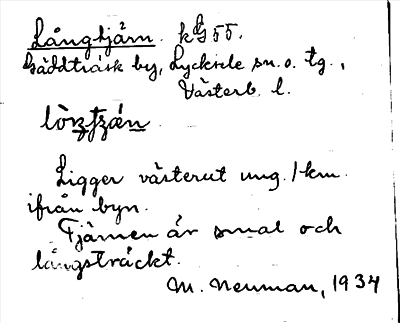 Långtjärn.
Gäddträsk by, Lycksele sn. o. tg.,
Västerb. l.
Ligger västerut ung. 1 km.
ifrån byn.
Tjärnen är smal och
långsträckt.
M. Neuman, 1934